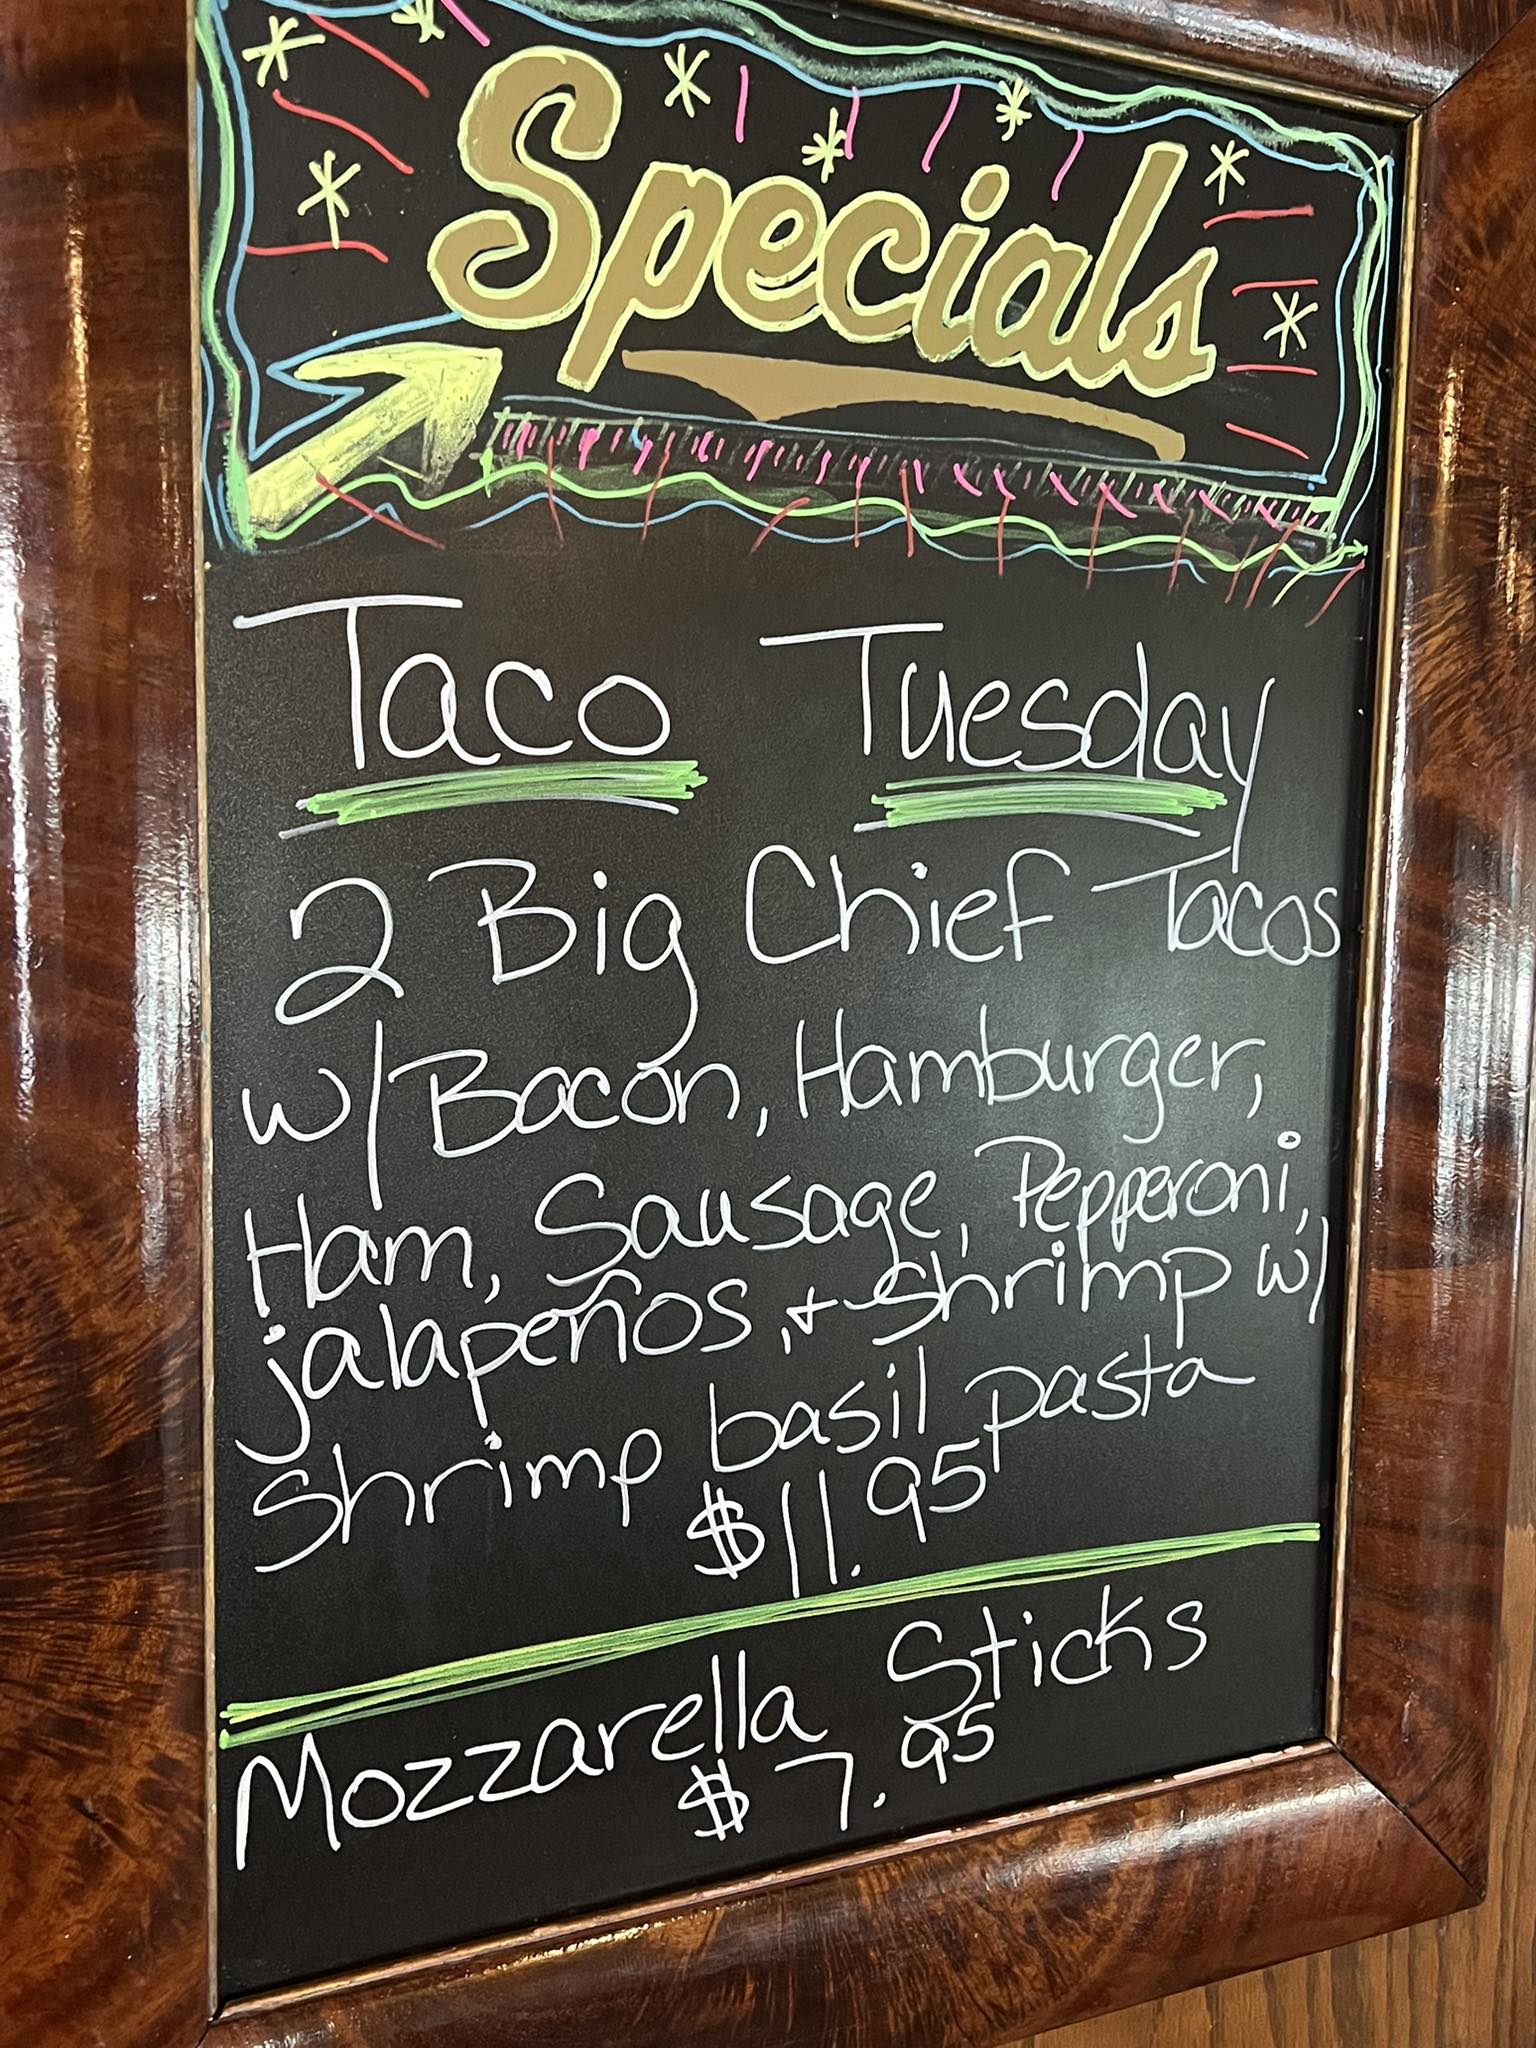 Specials
Taco Tuesday
2 Big Chief Tacos
w/ Bacon, Hamburger,
Ham, Sausage, Pepperoni,
jalapeños, + shrimp w/
shrimp basil pasta
$11.95
Mozzarella Sticks
$7.95